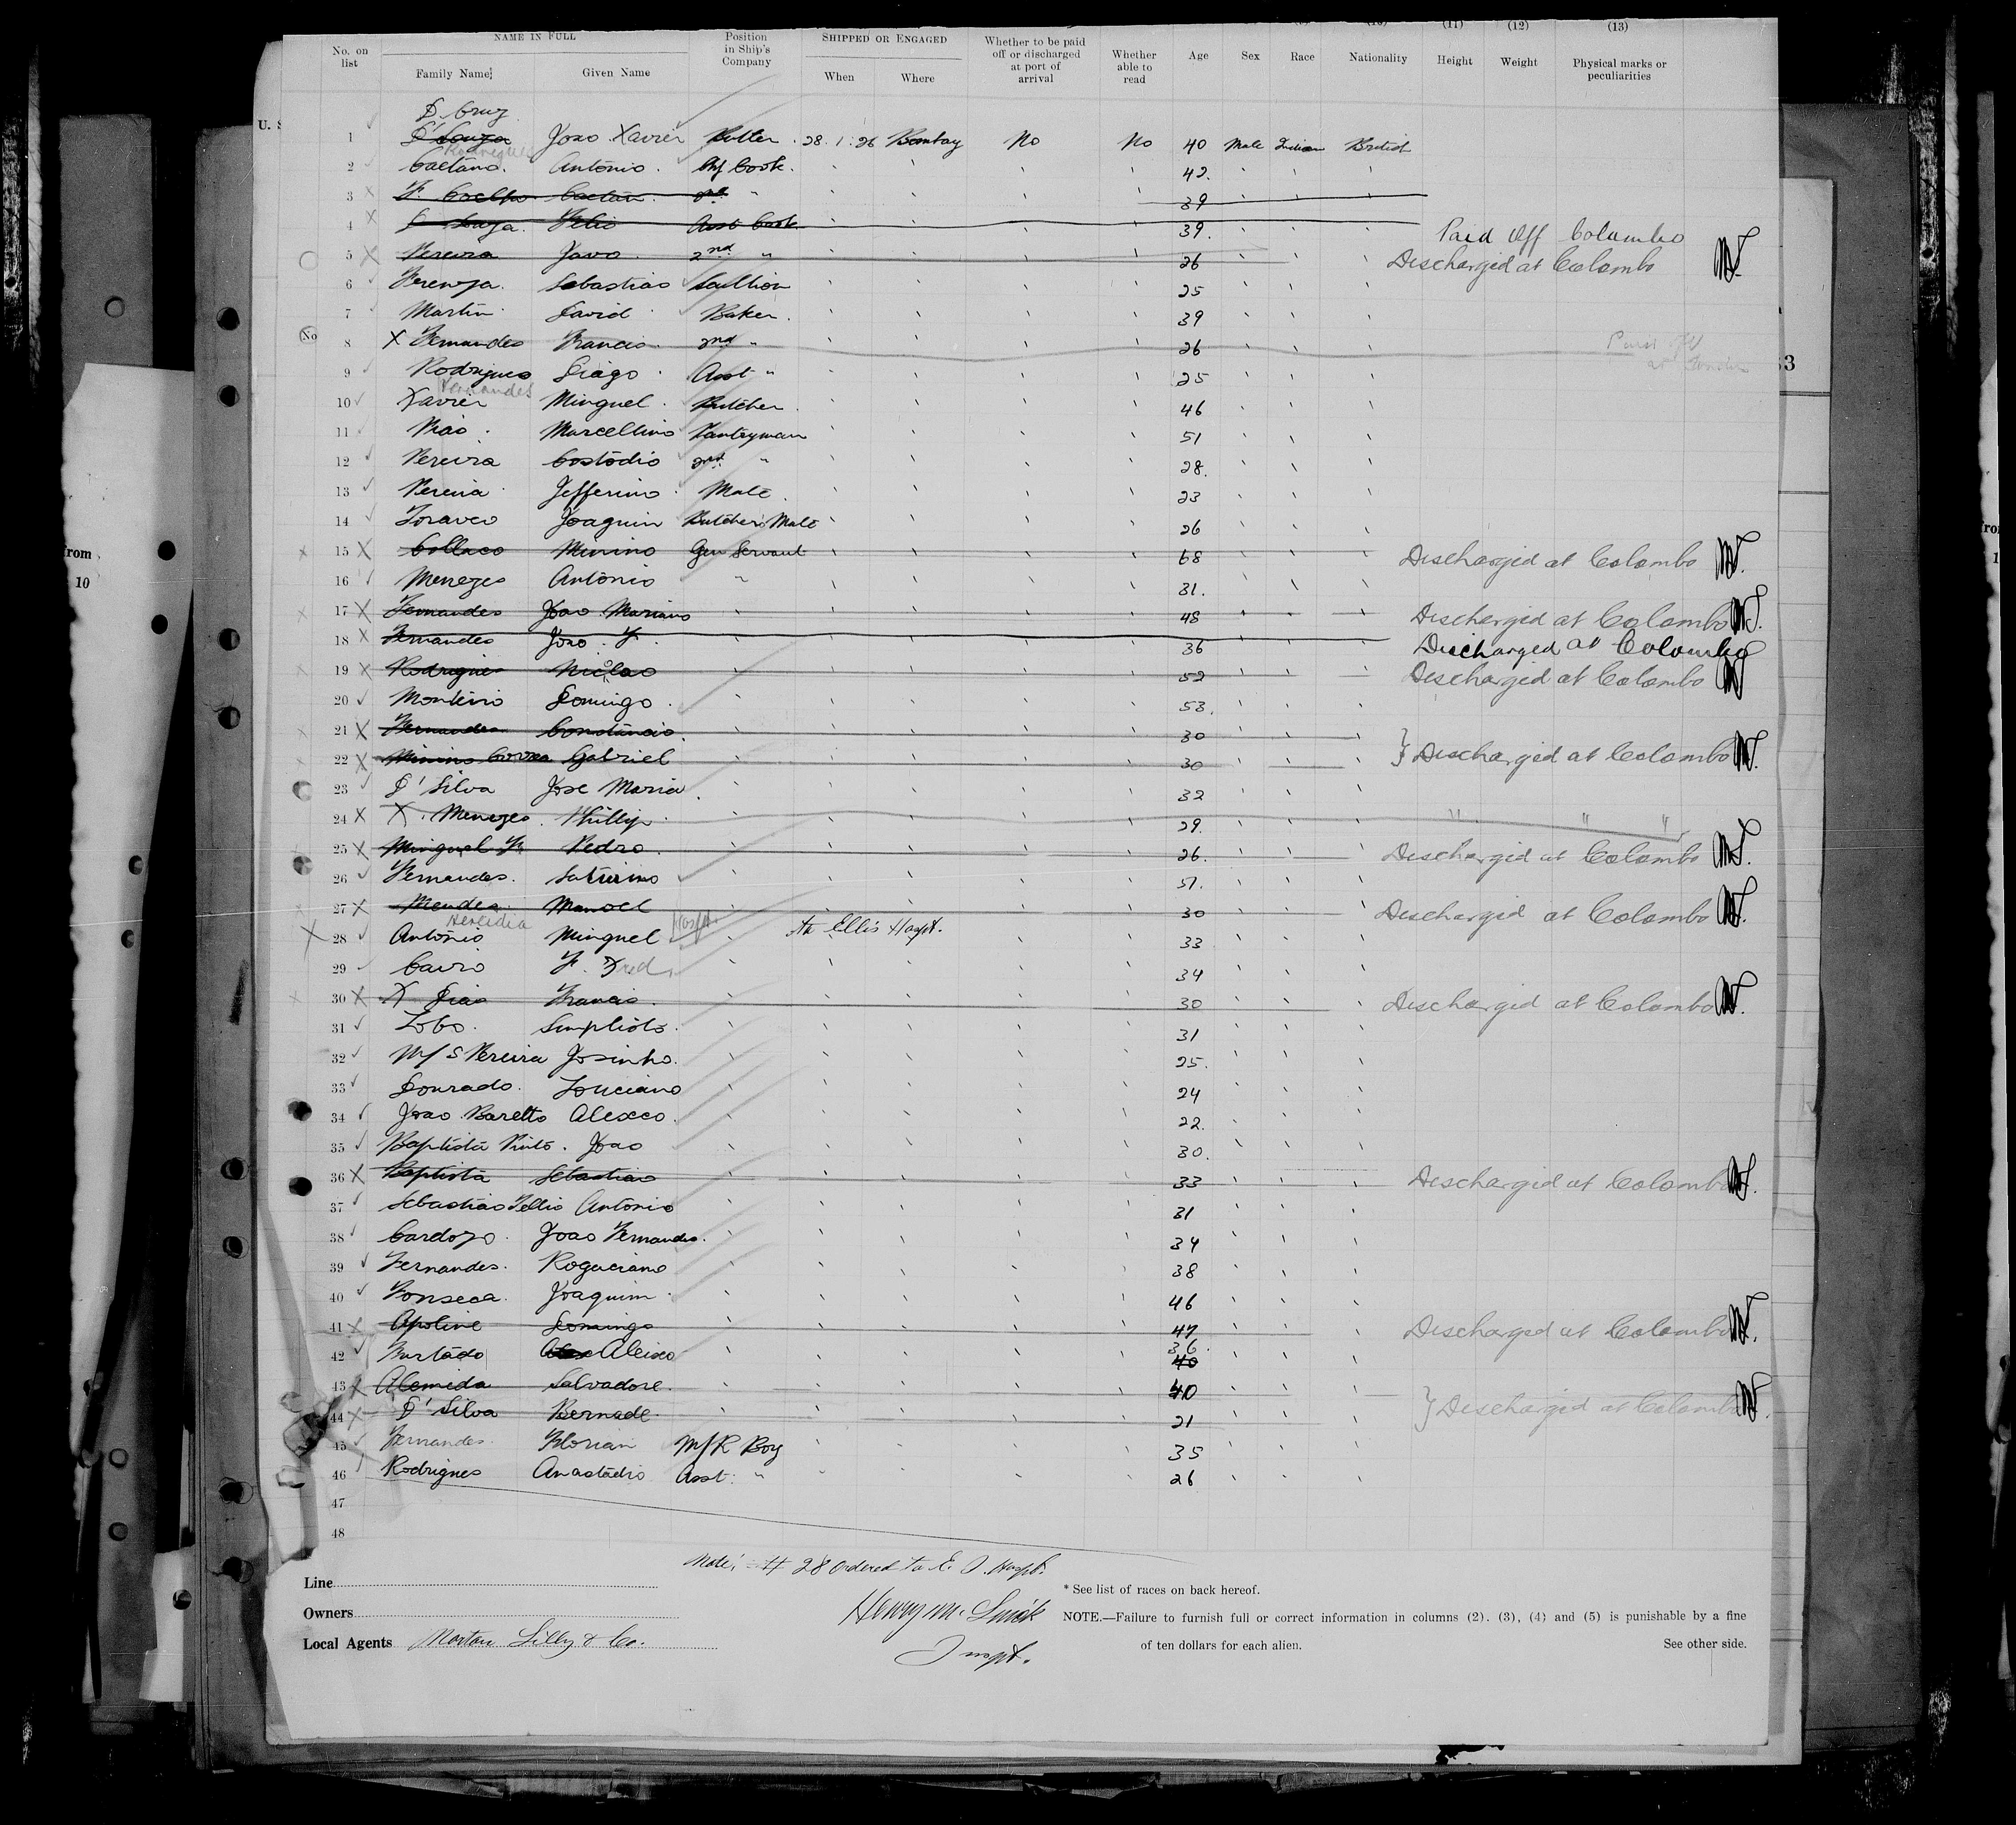 (11) (12) (13)
No. on list NAME IN FULL Family Name Given Name Position in Ship's Company SHIPPED OR ENGAGED When Where Whether to be paid off or discharged at port of arrival Whether able to read Age Sex Race Nationality Height Weight Physical marks or peculiarities
U. S
D. Cruz
1 D'Souza Joao Xavier Butler 28.1.26 Bombay No No 40 Male Indian British
Rodrigues
2 Caetano. Antonio. Chf Cook. 42.
3 F. Coelho Caetan. 2nd " 39
4 D Souza. Felio Asst Cook 39. Paid Off Colombo
5 Pereira Javo. 2nd " 26 Discharged at Colombo
6 Ferenza. Sebastiao Scullion 25
7 Martin David Baker. 39
No 8 X Fernandes Francis. 2nd " 26 Paid off at London
9 Rodrigues Diago. Asst " 25
Fernandes
10 Xavier Minguel. Butcher 46
11 Dias. Marcellino Pantryman 51
12 Pereira Costodio 2nd " 28.
13 Pereira Jefferino. Mate 23
14 Joaquim Butchers Mate 26
15 Collaco Menino Gen Servant 68 Discharged at Colombo
16 Menezes Antonio " 31.
17 Fernandes Joao Mariano 48 Discharged at Colombo
18 Fernandes Joao. F. 36 Discharged at Colombo
19 Rodrigues Nicolao 52 Discharged at Colombo
20 Monteiro Domingo 53.
21 Fernandes Constancio. 30
22 Minino Correa Gabriel 30 } Discharged at Colombo
23 D'Silva Jose Maria 32
24 X. Menezes. Phillip. 29. " " "
25 Minguel Fr Pedro. 26. Discharged at Colombo
26 Fernandes. Saturino 51.
27 Mendes. Manoel 30 Discharged at Colombo
Heredia
28 Antonio Minguel Hosp to Ellis Hospt. 33
29 Cairo F. Xred 34
30 X Dias Francis. 30 Discharged at Colombo
31 Lobo. Simplioto. 31
32 M/S Pereira Josinho. 25.
33 Dourado. Louciano 24
34 Joao Baretto Alexeo. 22.
35 Baptista Pinto. Joao 30.
36 Baptista Sebastiao 33 Discharged at Colombo
37 Sebastiao Fellis Antonio 31
38 Cardozo. Joao Fernandes. 34
39 Fernandes. Rogaciano 38
40 Fonseca. Joaquim. 46
41 Apoline Domingo 47 Discharged at Colombo
36.
42 Furtado Aleixo 40
43 Alemida Salvadore. 40
44 D'Silva Bernade. 21 } Discharged at Colombo
45 Fernandes Florian M/R Boy 35
46 Rodrigues Anastadio Asst. " 26
47
48
Note: # 28 ordered to E. I. Hospt.
Henry M. Smith
Inspt.
Line
Owners
Local Agents Norton Lilly & Co.
* See list of races on back hereof.
NOTE.—Failure to furnish full or correct information in columns (2). (3), (4) and (5) is punishable by a fine
of ten dollars for each alien. See other side.
from
10
63